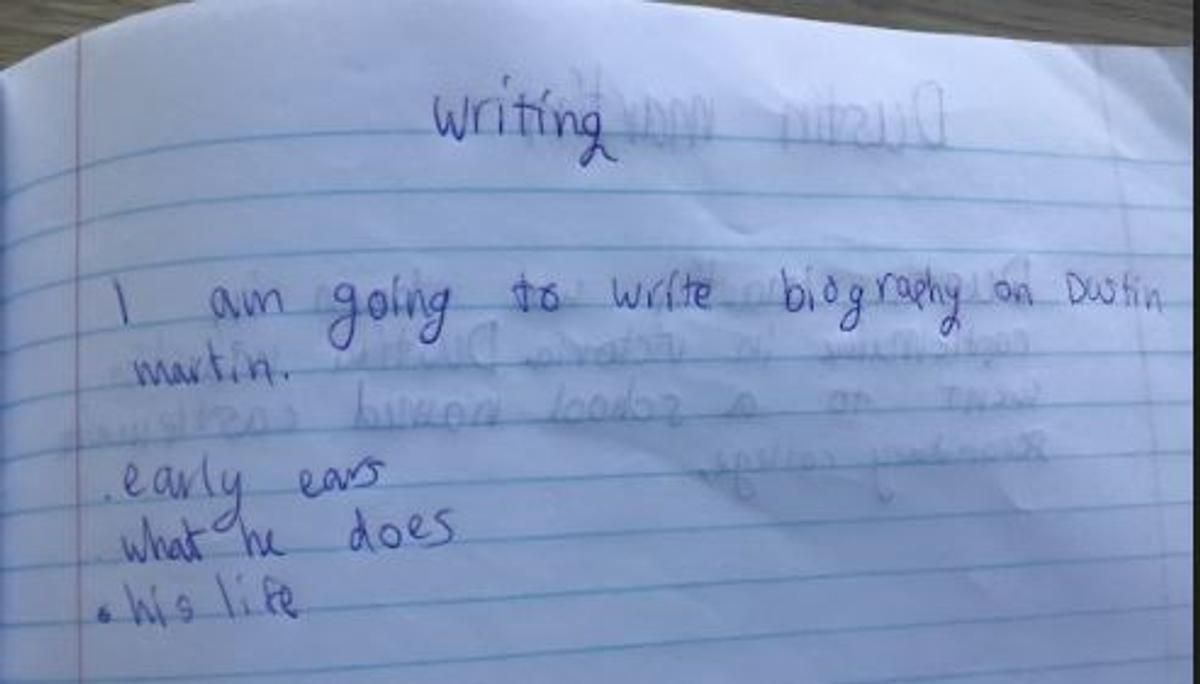 writing
I am going to write biography on Dustin
martin.
. early ears
. what he does
• his life